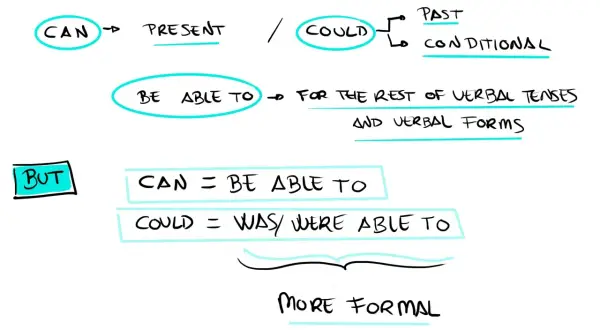 CAN → PRESENT / COULD → PAST
→ CONDITIONAL
BE ABLE TO → FOR THE REST OF VERBAL TENSES
AND VERBAL FORMS
BUT
CAN = BE ABLE TO
COULD = WAS/WERE ABLE TO
MORE FORMAL